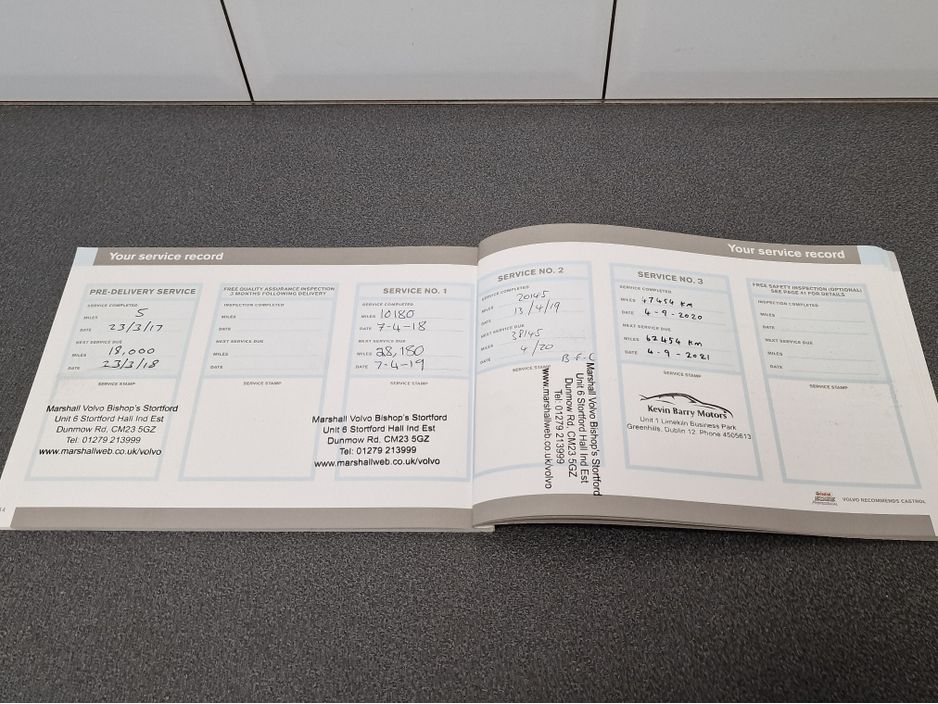 Your service record
PRE-DELIVERY SERVICE
SERVICE COMPLETED
MILES 5
DATE 23/3/17
NEXT SERVICE DUE
MILES 18,000
DATE 23/3/18
SERVICE STAMP
Marshall Volvo Bishop's Stortford
Unit 6 Stortford Hall Ind Est
Dunmow Rd, CM23 5GZ
Tel: 01279 213999
www.marshallweb.co.uk/volvo
FREE QUALITY ASSURANCE INSPECTION
3 MONTHS FOLLOWING DELIVERY
INSPECTION COMPLETED
MILES
DATE
NEXT SERVICE DUE
MILES
DATE
SERVICE STAMP
SERVICE NO. 1
SERVICE COMPLETED
MILES 10180
DATE 7-4-18
NEXT SERVICE DUE
MILES 28,180
DATE 7-4-19
SERVICE STAMP
Marshall Volvo Bishop's Stortford
Unit 6 Stortford Hall Ind Est
Dunmow Rd, CM23 5GZ
Tel: 01279 213999
www.marshallweb.co.uk/volvo
Your service record
SERVICE NO. 2
SERVICE COMPLETED
MILES 20145
DATE 13/4/19
NEXT SERVICE DUE
MILES 38145
DATE 4/20
B.F.C
SERVICE STAMP
Marshall Volvo Bishop's Stortford
Unit 6 Stortford Hall Ind Est
Dunmow Rd, CM23 5GZ
Tel: 01279 213999
www.marshallweb.co.uk/volvo
SERVICE NO. 3
SERVICE COMPLETED
MILES 47454 KM
DATE 4-9-2020
NEXT SERVICE DUE
MILES 62454 KM
DATE 4-9-2021
SERVICE STAMP
Kevin Barry Motors
Unit 1 Limekiln Business Park
Greenhills, Dublin 12. Phone 4505613
FREE SAFETY INSPECTION (OPTIONAL)
SEE PAGE 41 FOR DETAILS
INSPECTION COMPLETED
MILES
DATE
NEXT SERVICE DUE
MILES
DATE
SERVICE STAMP
VOLVO RECOMMENDS CASTROL